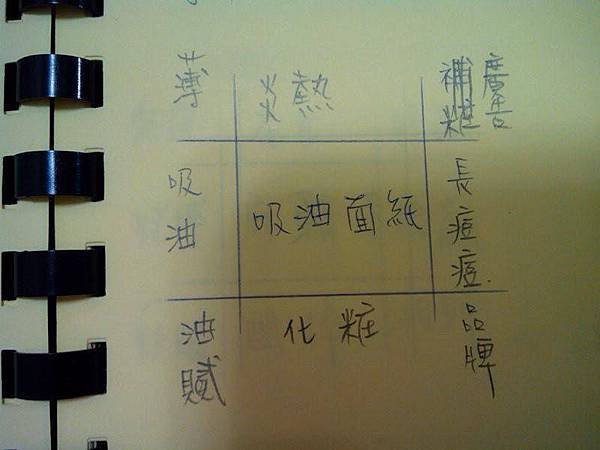 薄 炎熱 補粧 廣告
吸油 吸油面紙 長痘痘.
油賦 化粧 品牌